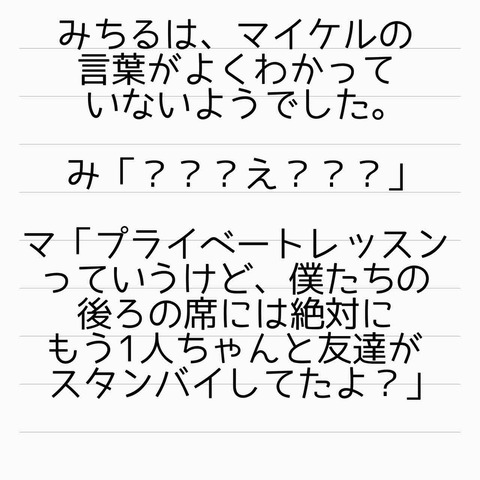 みちるは、マイケルの
言葉がよくわかって
いないようでした。
み「？？？え？？？」
マ「プライベートレッスン
っていうけど、僕たちの
後ろの席には絶対に
もう1人ちゃんと友達が
スタンバイしてたよ？」